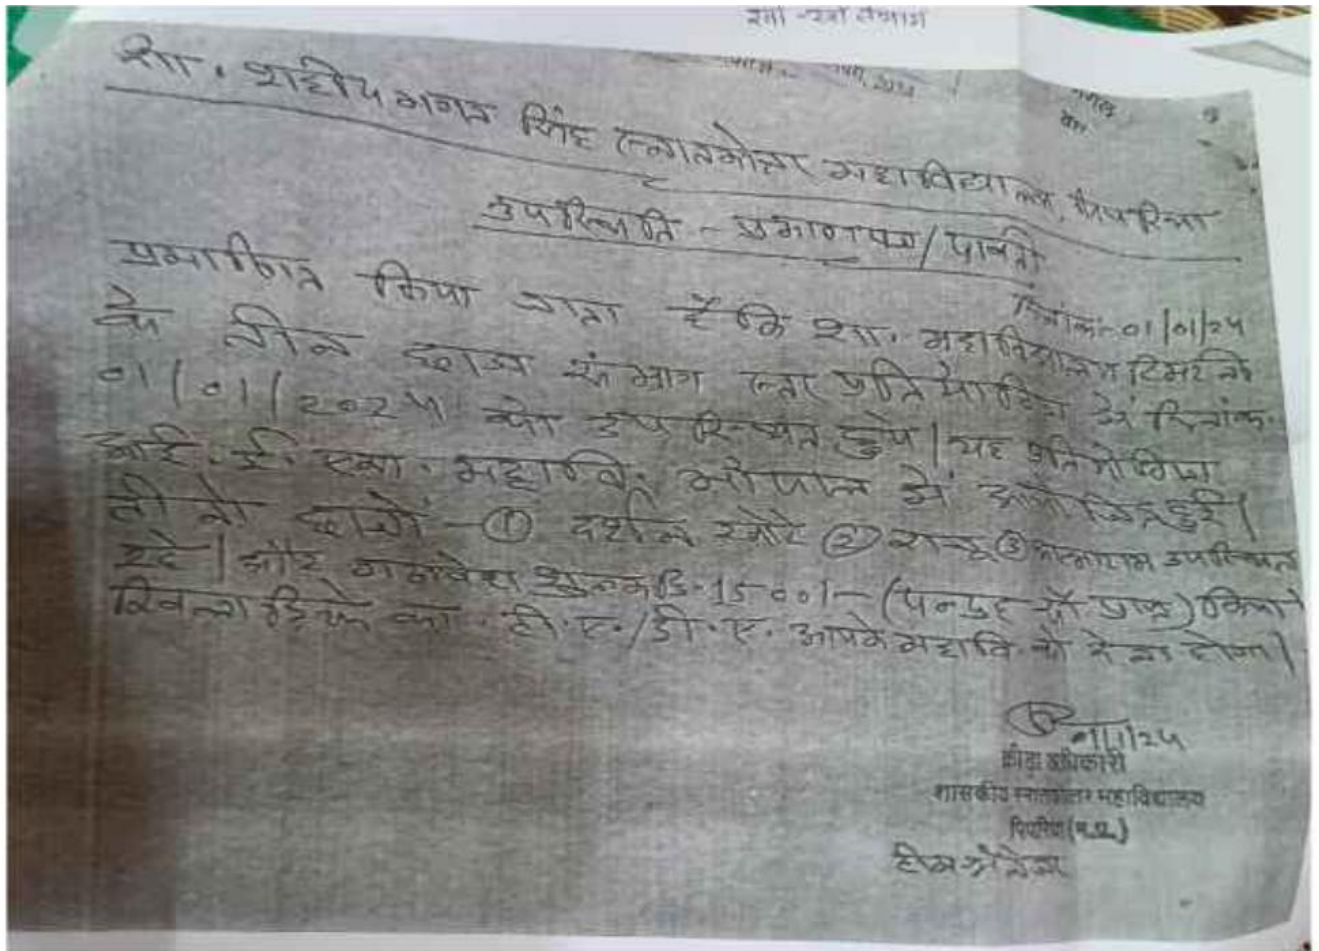 शा. शहीद भगत सिंह स्नातकोत्तर महाविद्यालय, पिपरिया
उपस्थिति - प्रमाणपत्र/पावती
दिनांक:- 01/01/25
प्रमाणित किया जाता है कि शा. महाविद्यालय टिमरनी
के तीन छात्र संभाग स्तर प्रतियोगिता में दिनांक
01/01/2025 को उपस्थित हुए। यह प्रतियोगिता
आई.ई.एस. महावि. भोपाल में आयोजित हुई।
तीनों छात्रों - ① दर्शन ② ③ उपस्थित
रहे। और गणवेश शुल्क 1500/- (पन्द्रह सौ प्राप्त) किया
खिलाड़ियों का टी.ए./डी.ए. आपके महावि को देना होगा।
01/1/25
क्रीड़ा अधिकारी
शासकीय स्नातकोत्तर महाविद्यालय
पिपरिया (म.प्र.)
टीम मैनेजर